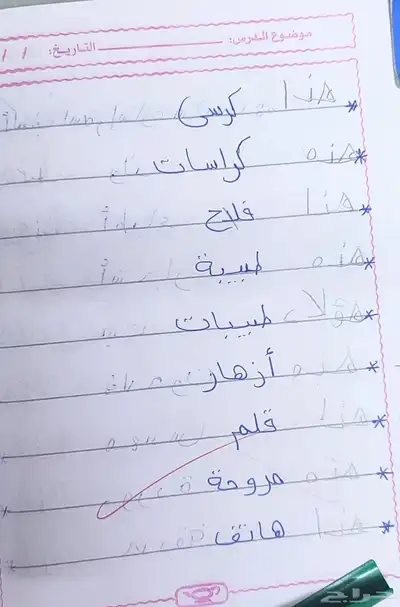 موضوع الدرس: التاريخ: / /
* هذا كرسى
* هذه كراسات
* هذا فلاح
* هذه طبيبة
* هؤلاء طبيبات
* هذه أزهار
* هذا قلم
* هذه مروحة
* هذا هاتف
حراج